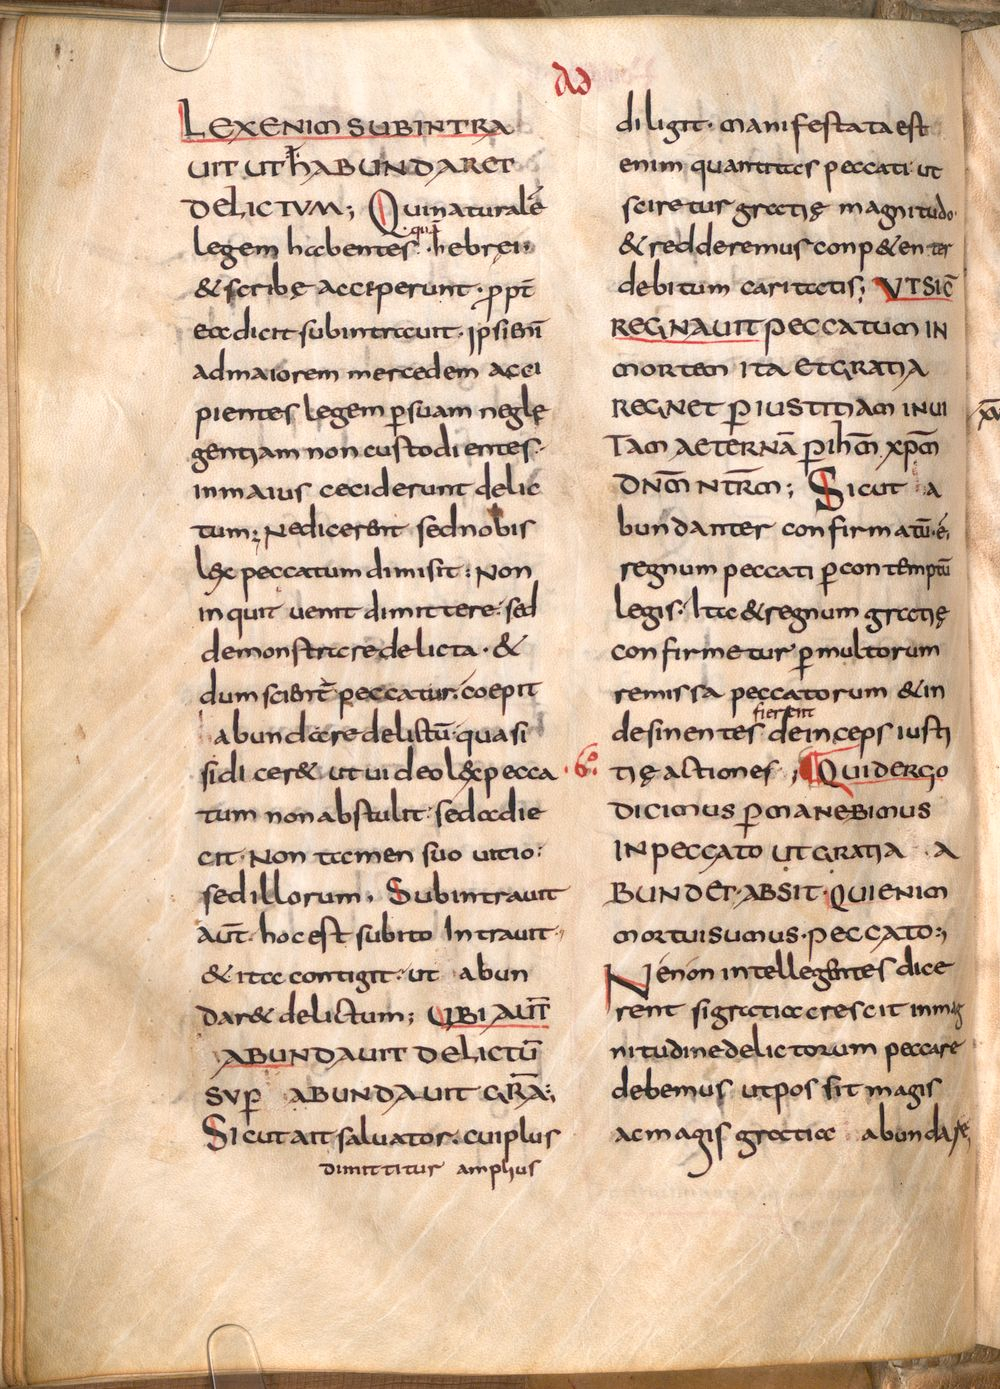 AD
LEX ENIM SUBINTRA
UIT UT hABUNDARET
DELICTUM; Qui naturalē
legem habentes · hebrei ·
qui
& scribę acceperunt · ꝓpt̄
ea dicit subintrauit · ipsi eni̅
ad maiorem mercedem acci
pientes legem ꝑ suam neglę
gentiam non custodientes ·
in maius ceciderunt delic
tum; Ne dicerent sed nobis
lęx peccatum dimisit : Non
inquit uenit dimittere · sed
demonstrare delicta · &
dum scient̄ peccatur · coepit
abundare delictū · quasi
si dicer& ut uideo lex pecca
tum non abstulit · sed addie
cit · Non tamen suo uitio ·
sed illorum · Subintrauit
aūt · hoc est subito Intrauit ·
& ita contigit · ut abun
dar& delictum; UBI AUT̄
ABUNDAUIT DELICTŪ
SUꝑ ABUNDAUIT GRĀ;
Sicut ait saluator · cui plus
dimittitur amplius
diligit · manifestata est
enim quantitas peccati · ut
sciretur gratię magnitudo ·
& redderemus conp&enter
debitum caritatis; UT SIC̄
REGNAUIT PECCATUM IN
MORTEM ITA ET GRATIA
REGNET ꝑ IUSTITIAM IN UI
TAM AETERNĀ ꝑ ihm̄ xpm̄
DNM̄ NTRM̄; Sicut a
bundanter confirmatū · ē ·
regnum peccati ꝑ contemptū
legis · Ita & regnum gratię
confirmetur ꝑ multorum
remissa peccatorum & in
fierent
desinentes deinceps iusti
· 6° ·
tię actiones ; QUID ERGO
DICIMUS ꝑMANEBIMUS
IN PECCATO UT GRATIA A
BUNDET · ABSIT · QUI ENIM
MORTUI SUMUS · PECCATO ·,
Ne non intellegentes dice
rent si gratia crescit in mag
nitudine delictorum peccare
debemus ut possit magis
ac magis gratia abundare,